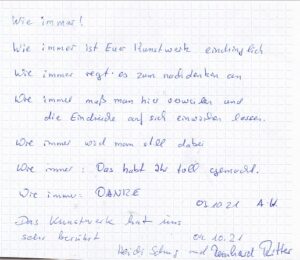 Wie immer!
Wie immer ist Euer Kunstwerk eindringlich
Wie immer regt es zum nachdenken an
Wie immer muß man hier verweilen und
die Eindrücke auf sich einwirken lassen.
Wie immer wird man still dabei
Wie immer: Das habt Ihr toll gemacht.
Wie immer: DANKE
03.10.21
Das Kunstwerk hat uns
sehr berührt
04.10.21
Heidi und Reinhard Ritter